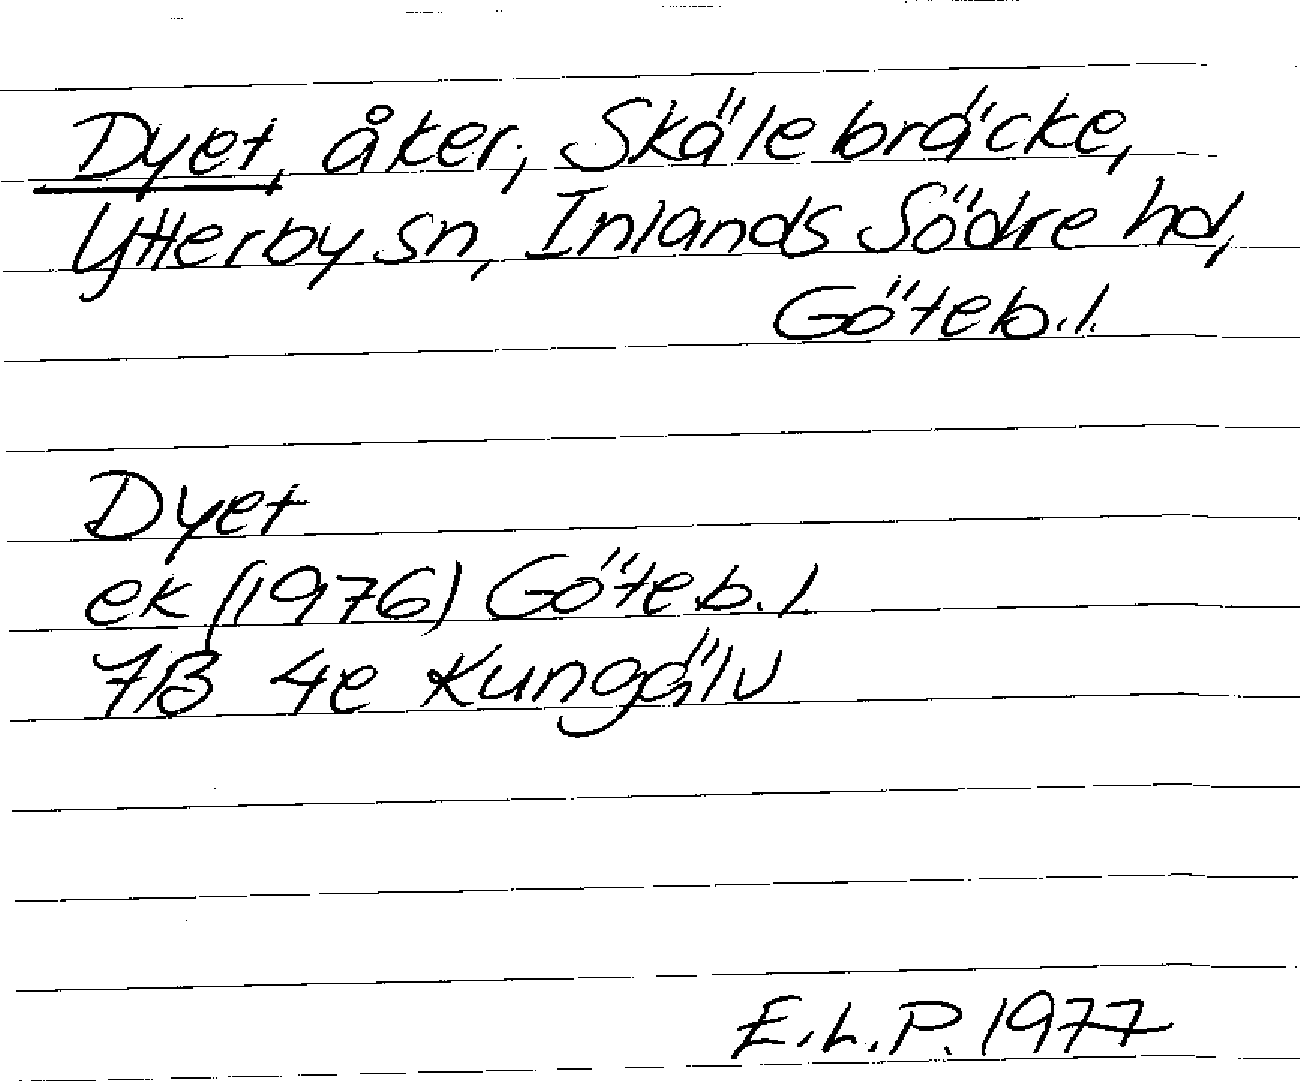 Dyet, åker, Skälebräcke,
Ytterby sn, Inlands Södre hd,
Göteb.l.
Dyet
ek (1976) Göteb.l
7B 4e Kungälv
E.L.P. 1977